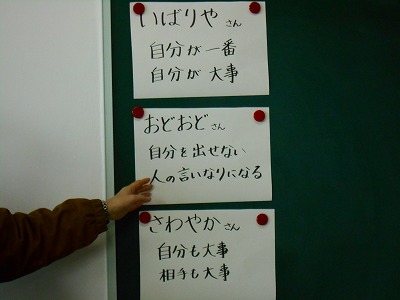 いばりやさん
自分が一番
自分が大事
おどおどさん
自分を出せない
人の言いなりになる
さわやかさん
自分も大事
相手も大事